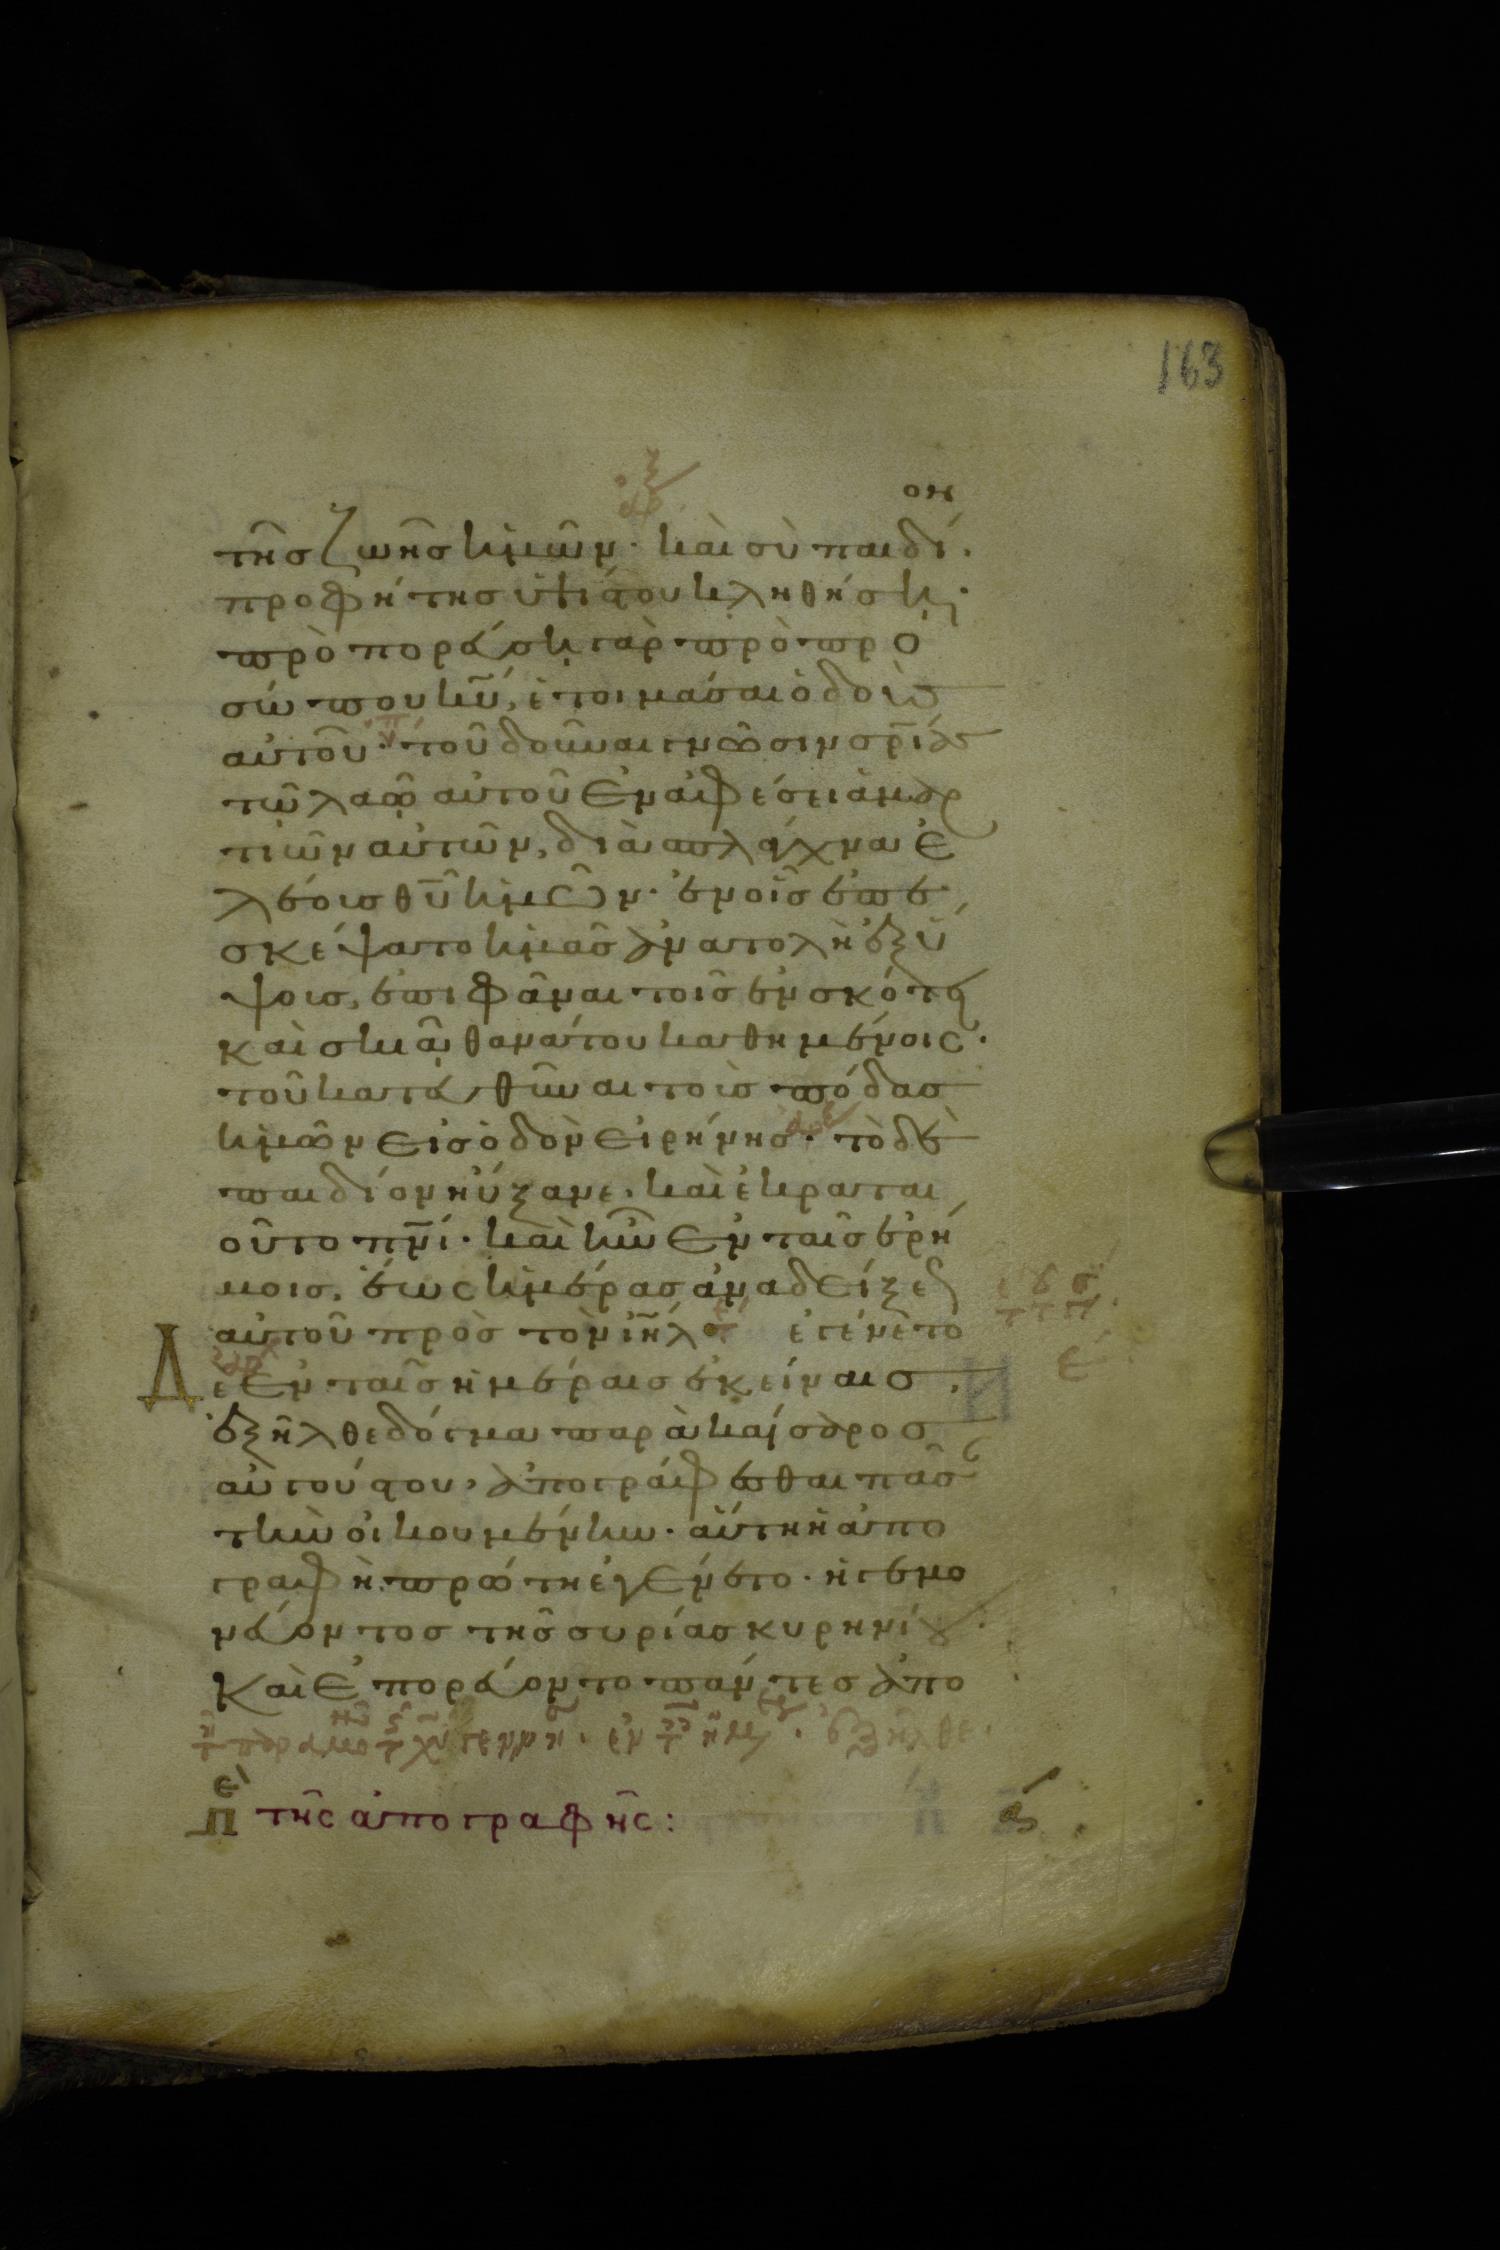 163
ον
τῆς ζωῆς ἡμῶν· καὶ σὺ παιδί·
προφήτης ὑψίστου κληθήση·
προπορεύση γὰρ πρὸ προ
σώπου κυ̅, ἑτοιμάσαι ὁδοὺς
αὐτοῦ· τοῦ δοῦναι γνῶσιν σρ̅ίας
τῷ λαῷ αὐτοῦ ἐν ἀφέσει ἁμαρ
τιῶν αὐτῶν, διὰ σπλάγχνα ἐ
λέους θυ̅ ἡμῶν· ἐν οἷς ἐπε
σκέψατο ἡμᾶς ἀνατολὴ ἐξ ὕ
ψους, ἐπιφᾶναι τοῖς ἐν σκότει
καὶ σκιᾷ θανάτου καθημένοις·
τοῦ κατευθῦναι τοὺς πόδας
ἡμῶν εἰς ὁδὸν εἰρήνης· τὸ δὲ
παιδίον ηὔξανε· καὶ ἐκραται
οῦτο πν̅ι· καὶ ἦν ἐν ταῖς ἐρή
μοις, ἕως ἡμέρας ἀναδείξεως
αὐτοῦ πρὸς τὸν ιη̅λ· ἐγένετο
Δὲ ἐν ταῖς ἡμέραις ἐκείναις,
ἐξῆλθε δόγμα παρὰ καίσαρος
αὐγούστου, ἀπογράφεσθαι πᾶσ
τὴν οἰκουμένην· αὕτη ἡ ἀπο
γραφὴ πρώτη ἐγένετο· ἡγεμο
νεύοντος τῆς συρίας κυρηνίου·
Καὶ ἐπορεύοντο πάντες ἀπο
ἐξῆλθε·
π τῆς ἀπογραφῆς: